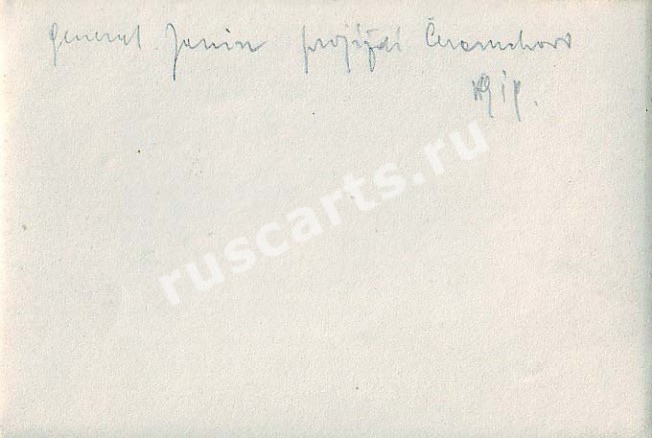 General Janin projíždí Čeremchovo
191
ruscarts.ru